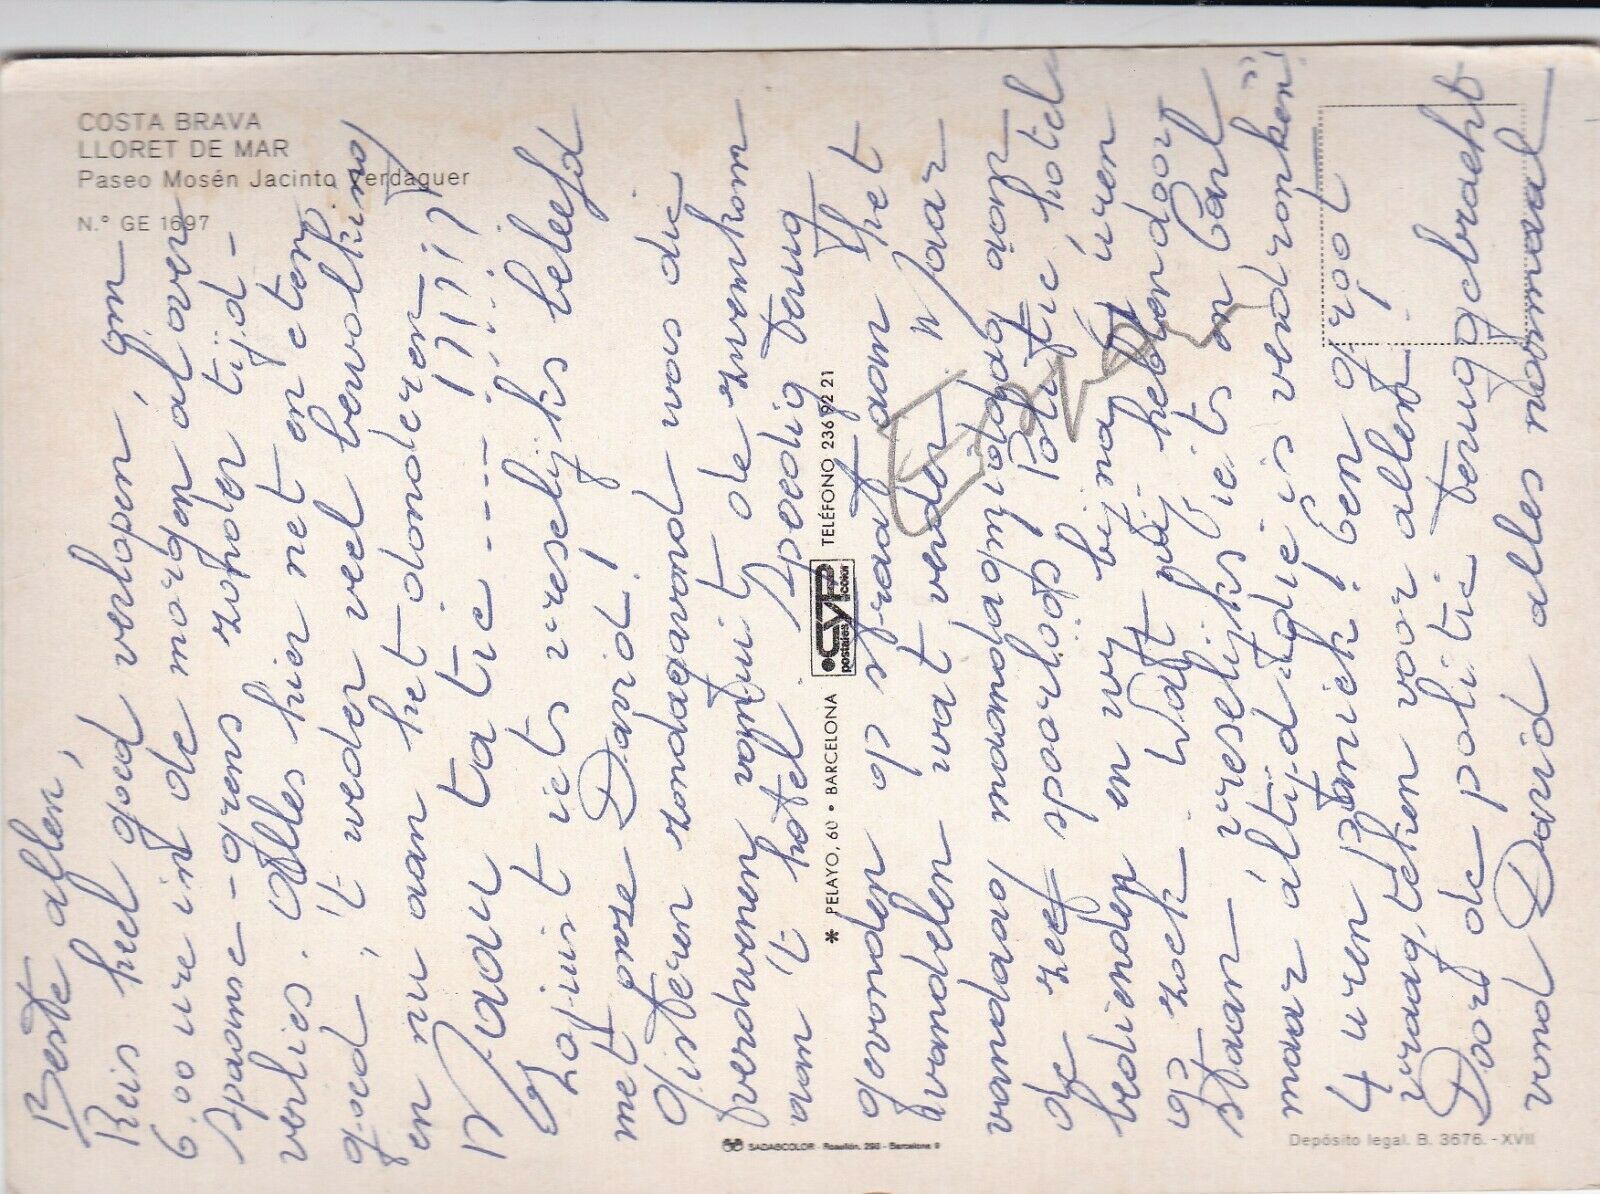 COSTA BRAVA
LLORET DE MAR
Paseo Mosén Jacinto Verdaguer
N.º GE 1697
Beste allen,
Reis heel goed verlopen, om
6.00 ure in de morgen al over
spaanse-grens zonder tijd-
verlies. Alles hier net en eten
goed, 't weder vel bewolking
en nu aan het donderen
Nou tatie ---- !!!!!!
Zojuist iets vreselijks beleefd
met onze David!
Gisteren zondagavond was die
verdwenen vanuit de zwemkom
van 't hotel. Spoedig terug
gevonden op straat aan het
wandelen wat verder. Maar
vandaag maandagmiddag van
de zeef spoorloos Politie hotel
bedienden en wij bijna uren
op zoek. Wat wij hebben door
staan vreselijks iets en Carl
maar altijd die is verdronken!
4 uren Paniek! Een groot
vraagteken voor allen!
Door de politie teruggebracht
vond David alles normaal
* PELAYO, 60 • BARCELONA
CYP
postales color
TELÉFONO 236 92 21
SADAGCOLOR - Rosellón, 298 - Barcelona 9
Depósito legal. B. 3676. - XVII